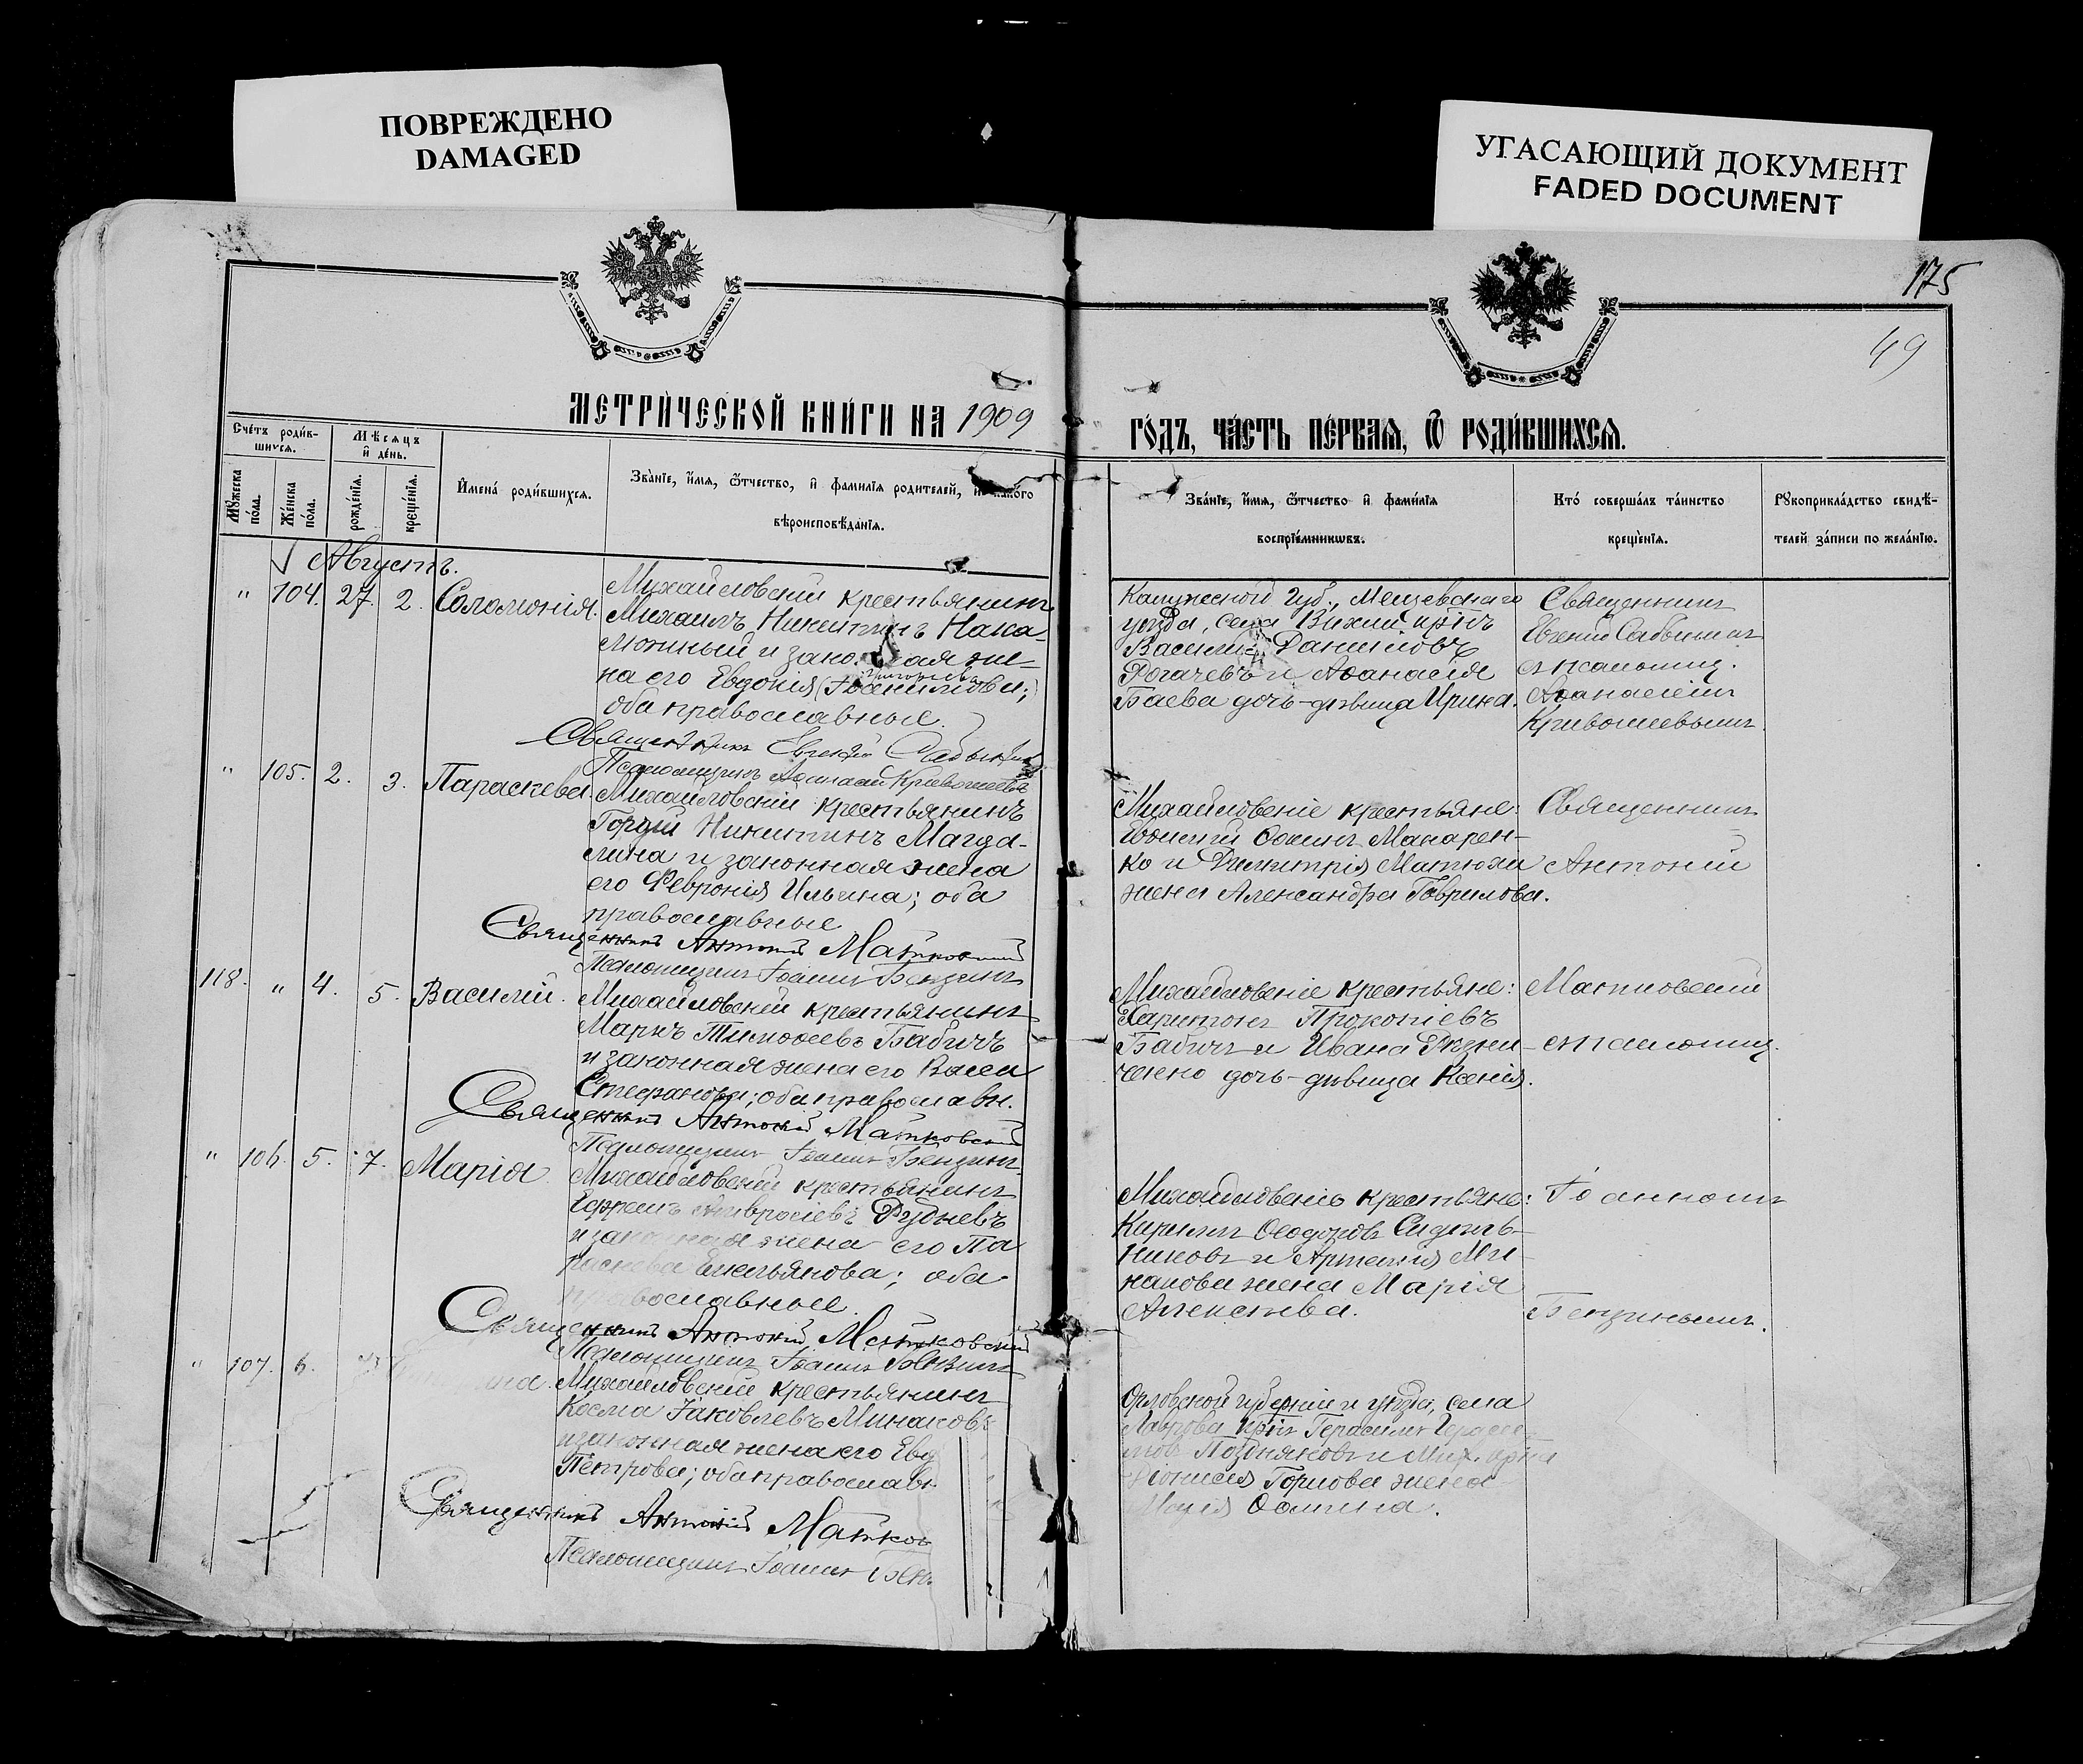 ПОВРЕЖДЕНО
DAMAGED
УГАСАЮЩИЙ ДОКУМЕНТ
FADED DOCUMENT
175
49
МЕТРИЧЕСКОЙ КНИГИ НА 1909
ГОДЪ, ЧАСТЬ ПЕРВАЯ, Ѡ РОДИВШИХСЯ.
Счетъ родив-
шихся.
Мѣсяцъ
и день.
Мужеска
пола.
Женска
пола.
рожденія.
крещенія.
Имена родившихся.
Званіе, имя, ѿчество, и фамилія родителей, и какого
вѣроисповѣданія.
Званіе, имя, ѿчество и фамилія
воспріемниковъ.
Кто совершалъ таинство
крещенія.
Рукоприкладство свидѣ-
телей записи по желанію.
Августъ.
" 104. 27. 2. Соломонія.
Михайловскій крестьянинъ
Михаилъ Никитинъ Нака-
ная же-
на его Евдокія
оба православные.
Священникъ Евгеній
Псаломщикъ
Калужской губ., Мещевскаго
уѣзда, села крнъ
Василій Даниловъ
Рогачевъ и Аѳанасія
Баева дочь-дѣвица Ирина.
Священникъ
Евгеній
съ псаломщ.
Аѳанасіемъ
Кривошеевымъ.
" 105. 2. 3. Параскева.
Михайловскій крестьянинъ
Гордій Никитинъ Магда-
лина и законная жена
его Февронія Ильина; оба
православные
Священникъ Антоній Матковскій
Псаломщикъ Іоаннъ Бензинъ
Михайловскіе крестьяне:
Макарен-
ко и Димитрія Матюхи
жена Александра Гаврилова.
Священникъ
Антоній
118. " 4. 5. Василій.
Михайловскій крестьянинъ
Маркъ Тимоѳеевъ Бабичъ
и законная жена его Васса
Стефанова; оба православн.
Священникъ Антоній Матковскій
Псаломщикъ Іоаннъ Бензинъ
Михайловскіе крестьяне:
Харитонъ Прокопіевъ
Бабичъ и Ивана Рѣзни-
ченко дочь-дѣвица Ксенія.
Матковскій
съ псаломщ.
" 106. 5. 7. Марія
Михайловскій крестьянинъ
Ефремъ Амвросіевъ Рудневъ
и законная жена его Па
раскева Емельянова; оба
православные.
Священникъ Антоній Матковскій
Псаломщикъ Іоаннъ Бензинъ
Михайловскіе крестьяне:
Кириллъ Ѳеодоровъ Сидель-
никовъ и Артемія Ми-
накова жена Марія
Алексѣева.
Іоанномъ
Бензинымъ.
" 107. 6.
Михайловскій крестьянинъ
Косма Іаковлевъ Минаковъ
и законная жена его Евд
Петрова; оба православн
Священникъ Антоній Матков
Псаломщикъ Іоаннъ Бен
Орловской губерніи и уѣзда, села
крнъ Герасимъ
Поздняковъ и Мих. крна
Діонисія Горлова жена